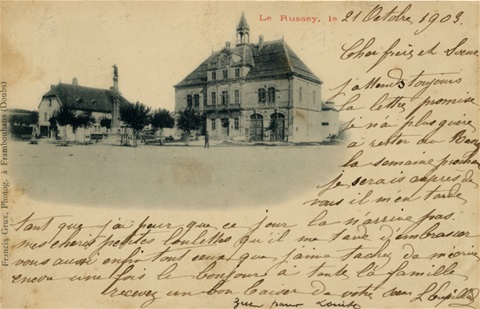 Le Russey, le 21 Octobre 1903.
Cher frère et Sœur
j'attends toujours
la lettre promise
je n'ai plus que
à rester au Russey
la semaine prochaine
je serais auprès de
vous il m'en tarde
tant que j'ai peur que ce jour la n'arrive pas.
mes cheries petites qu'il me tarde d'embrasser
vous aussi enfin tout ceux que j'aime tachez de m'écrire
encore une fois le bonjours à toute la famille
recevez un bon baiser de votre sœur
pour Louise
Francis Grux, Photog. à Frambouhans (Doubs)